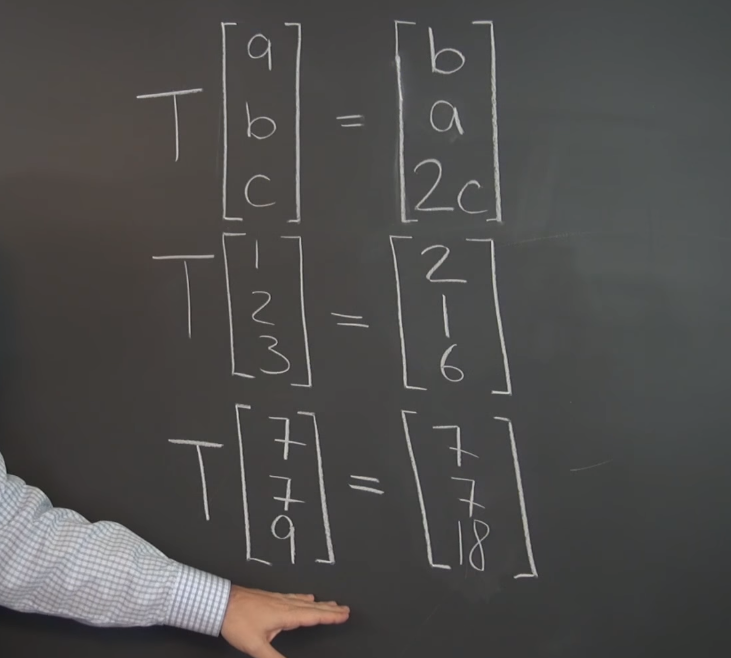 T [a b c] = [b a 2c]
T [1 2 3] = [2 1 6]
T [7 7 9] = [7 7 18]